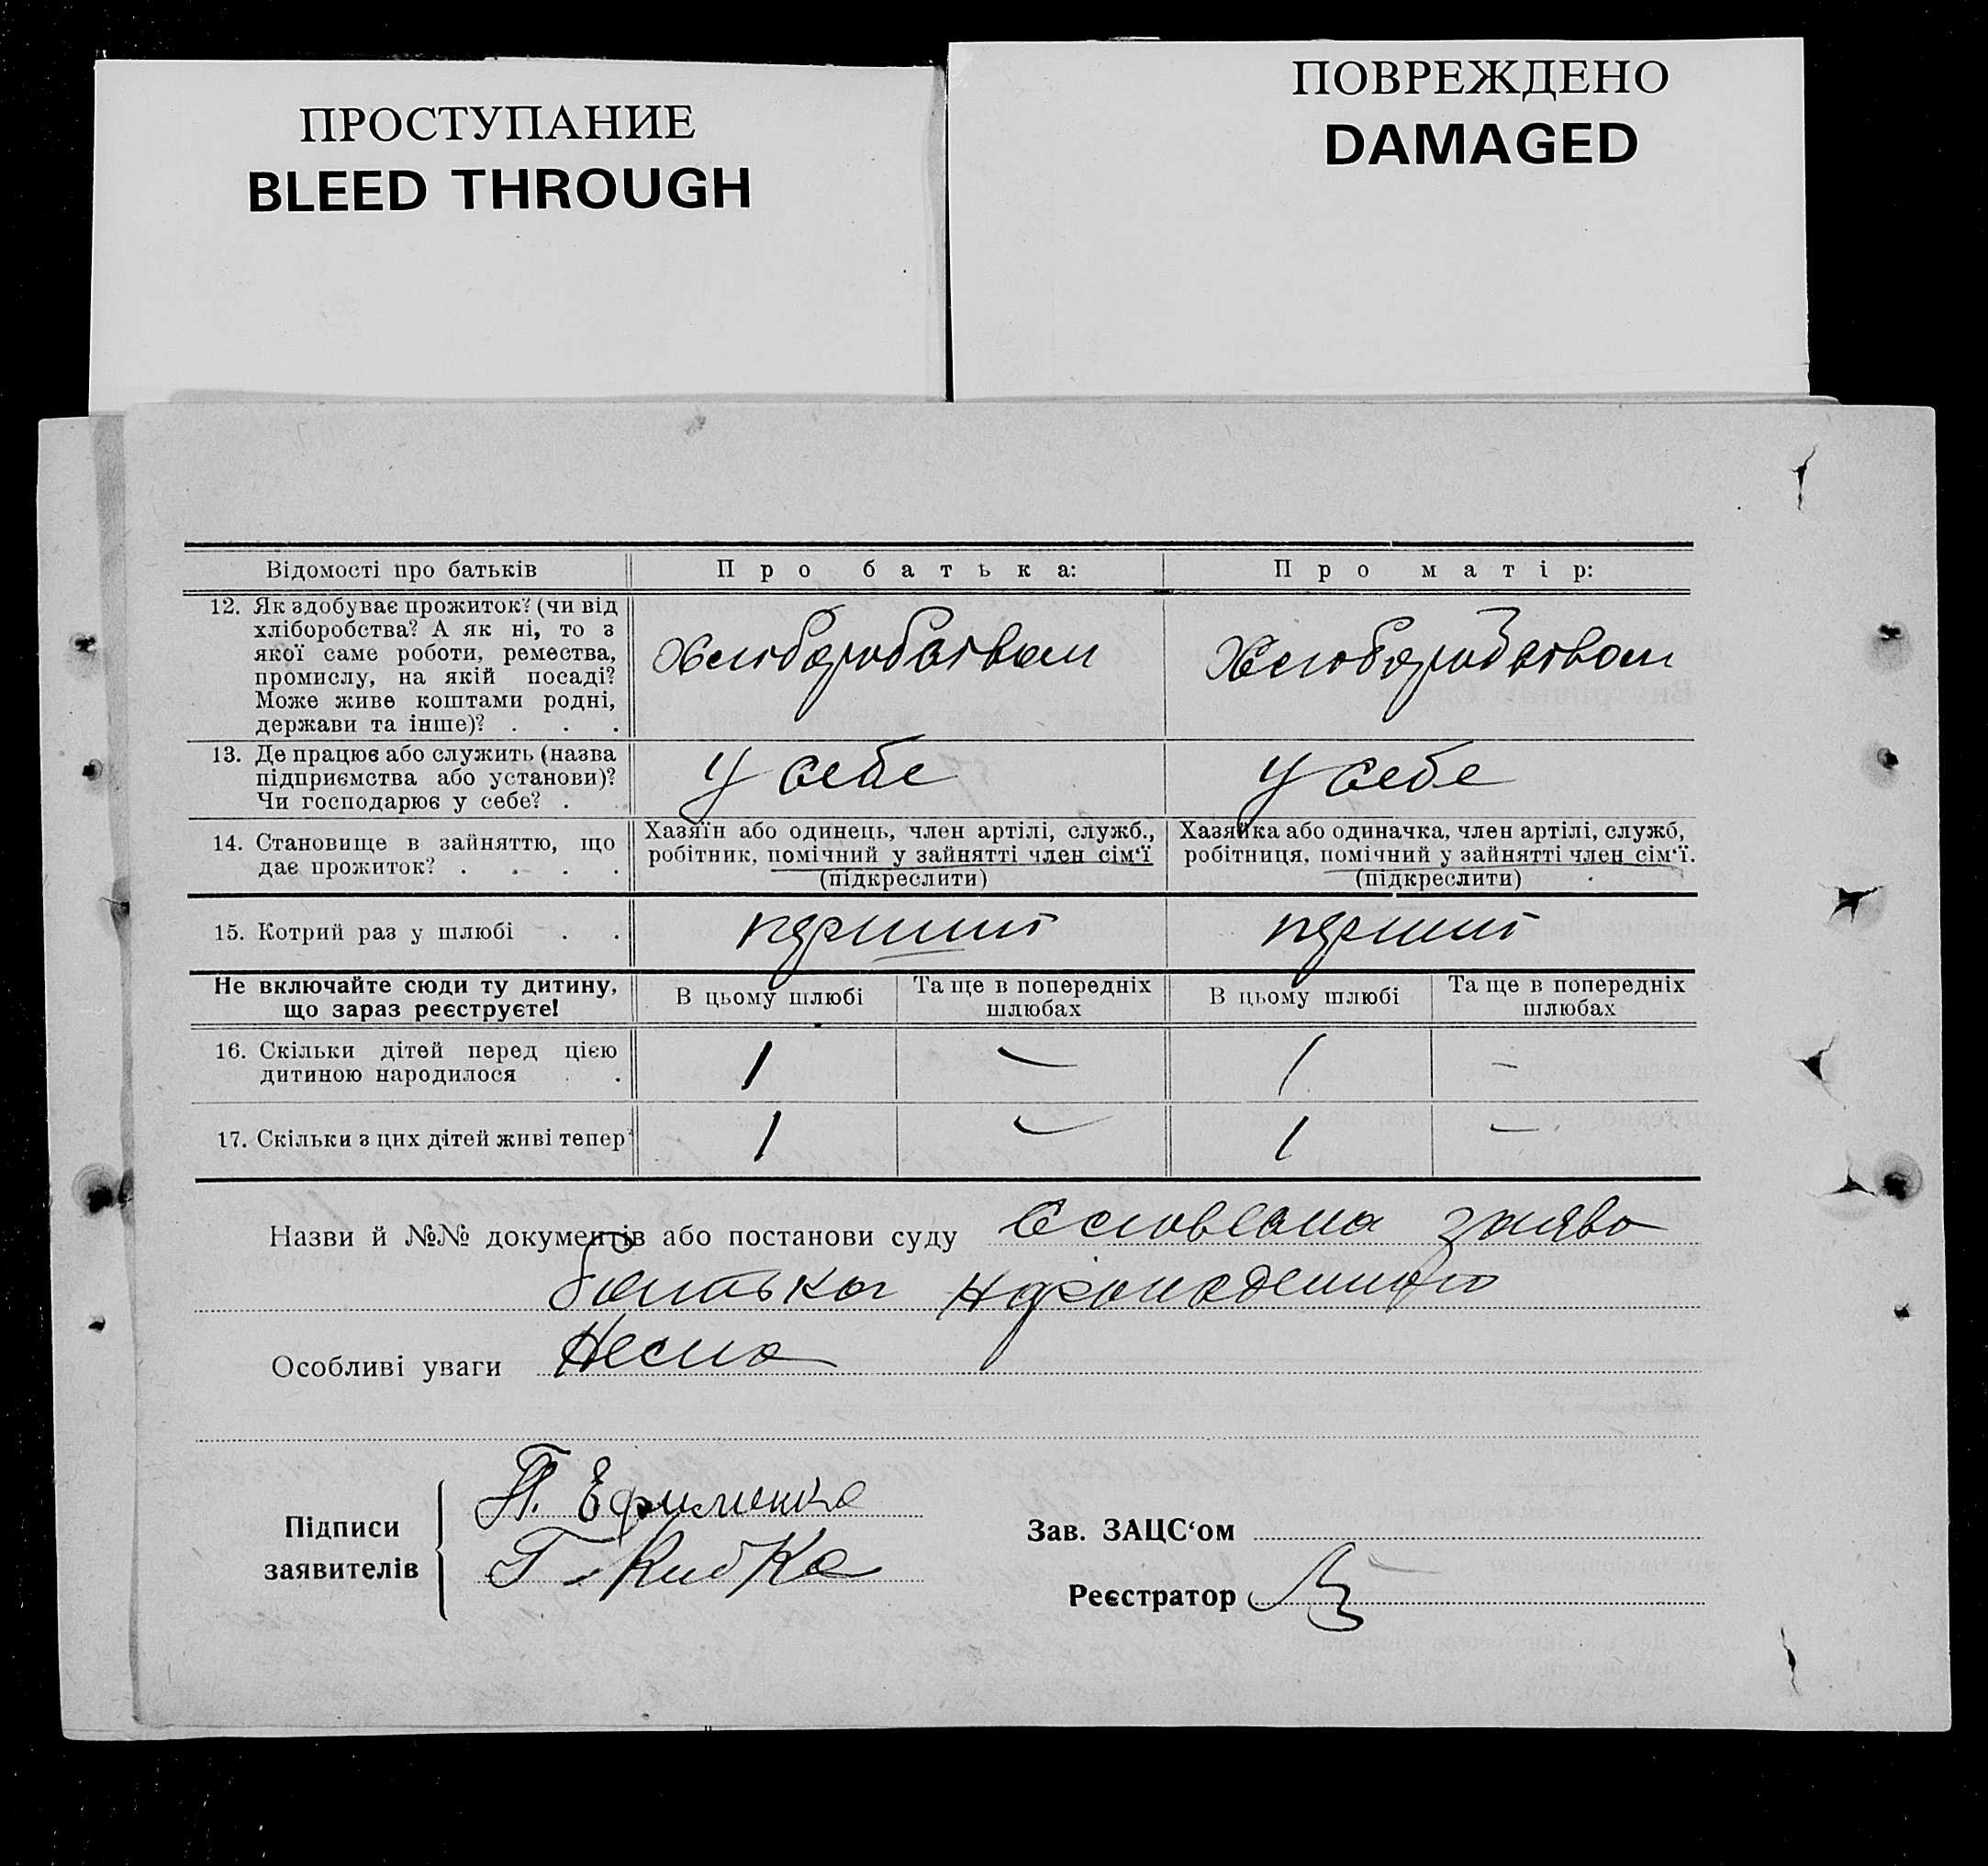 ПРОСТУПАНИЕ
BLEED THROUGH
ПОВРЕЖДЕНО
DAMAGED
Відомості про батьків
Про батька:
Про матір:
12. Як здобуває прожиток? (чи від
хліборобства? А як ні, то з
якої саме роботи, ремества,
промислу, на якій посаді?
Може живе коштами родні,
держави та інше)? . . .
Хлиборобством
Хлиборобством
13. Де працює або служить (назва
підприємства або установи)?
Чи господарює у себе? .
У себе
У себе
14. Становище в зайняттю, що
дає прожиток? . . . .
Хазяїн або одинець, член артілі, служб.,
робітник, помічний у зайнятті член сім‘ї
(підкреслити)
Хазяйка або одиначка, член артілі, служб,
робітниця, помічний у зайнятті член сім‘ї.
(підкреслити)
15. Котрий раз у шлюбі . .
перший
перший
Не включайте сюди ту дитину,
що зараз реєструєте!
В цьому шлюбі
Та ще в попередніх
шлюбах
В цьому шлюбі
Та ще в попередніх
шлюбах
16. Скільки дітей перед цією
дитиною народилося . .
1 — 1 —
17. Скільки з цих дітей живі тепер?
1 — 1 —
Назви й №№ документів або постанови суду Словесна заява
батька
Особливі уваги Нема
Підписи
заявителів
П. Ефименко
Г.
Зав. ЗАЦС‘ом
Реєстратор